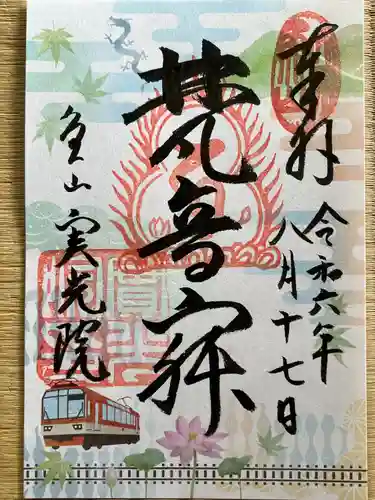 奉拝
令和六年
八月十七日
梵音
魚山 実光院